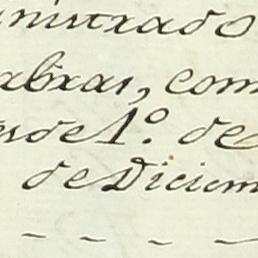 inistrado
abras, com
esde 1º. de
de Diciem